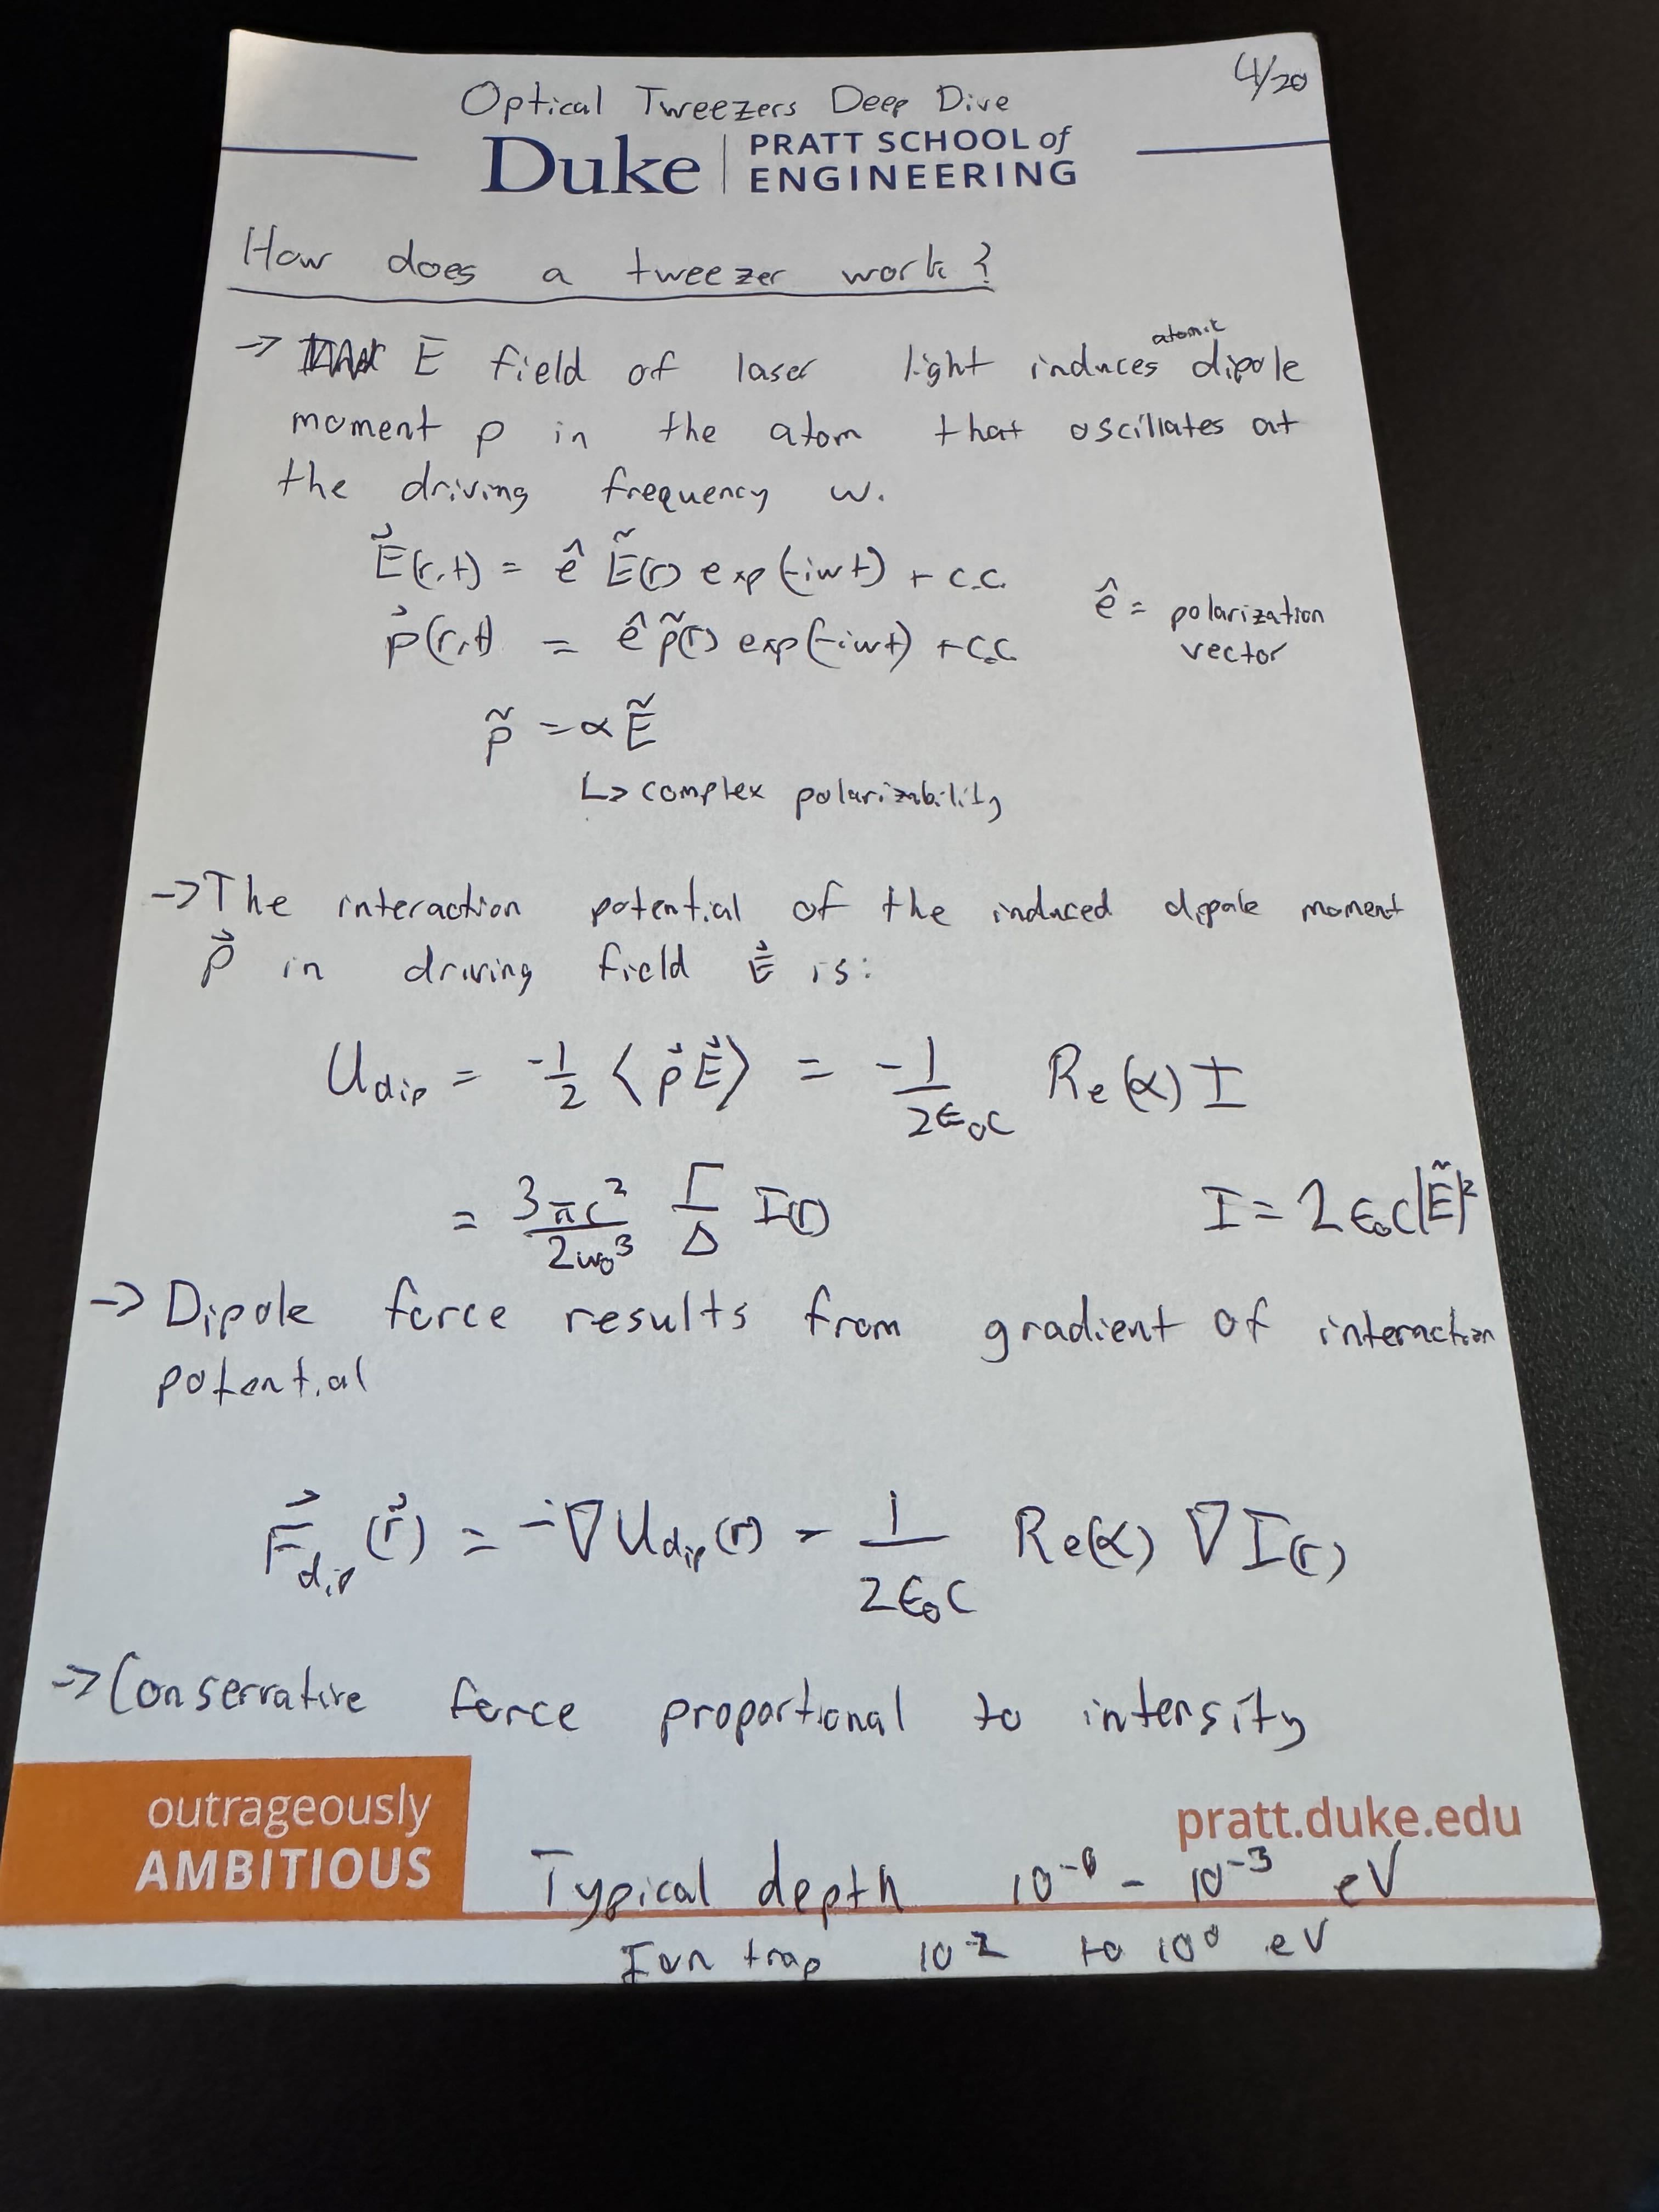 4/20
Optical Tweezers Deep Dive
Duke | PRATT SCHOOL of
ENGINEERING
How does a tweezer work?
→ E field of laser light induces atomic dipole
moment p in the atom that oscillates at
the driving frequency w.
E⃗(r,t) = ê Ẽ(r) exp(-iwt) + c.c.
p⃗(r,t) = ê p̃(r) exp(-iwt) + c.c.
ê = polarization
vector
p̃ = α Ẽ
↳ complex polarizability
→ The interaction potential of the induced dipole moment
p⃗ in driving field E⃗ is:
U_dip = -1/2 ⟨p⃗E⃗⟩ = -1/(2ε₀c) Re(α) I
= 3πc²/(2w₀³) Γ/Δ I(r)
I = 2ε₀c|Ẽ|²
→ Dipole force results from gradient of interaction
potential
F⃗_dip(r⃗) = -∇U_dip(r) = 1/(2ε₀c) Re(α) ∇I(r)
→ Conservative force proportional to intensity
outrageously
AMBITIOUS
pratt.duke.edu
Typical depth - 10⁻³ eV
Ion trap 10⁻² to 10⁰ eV